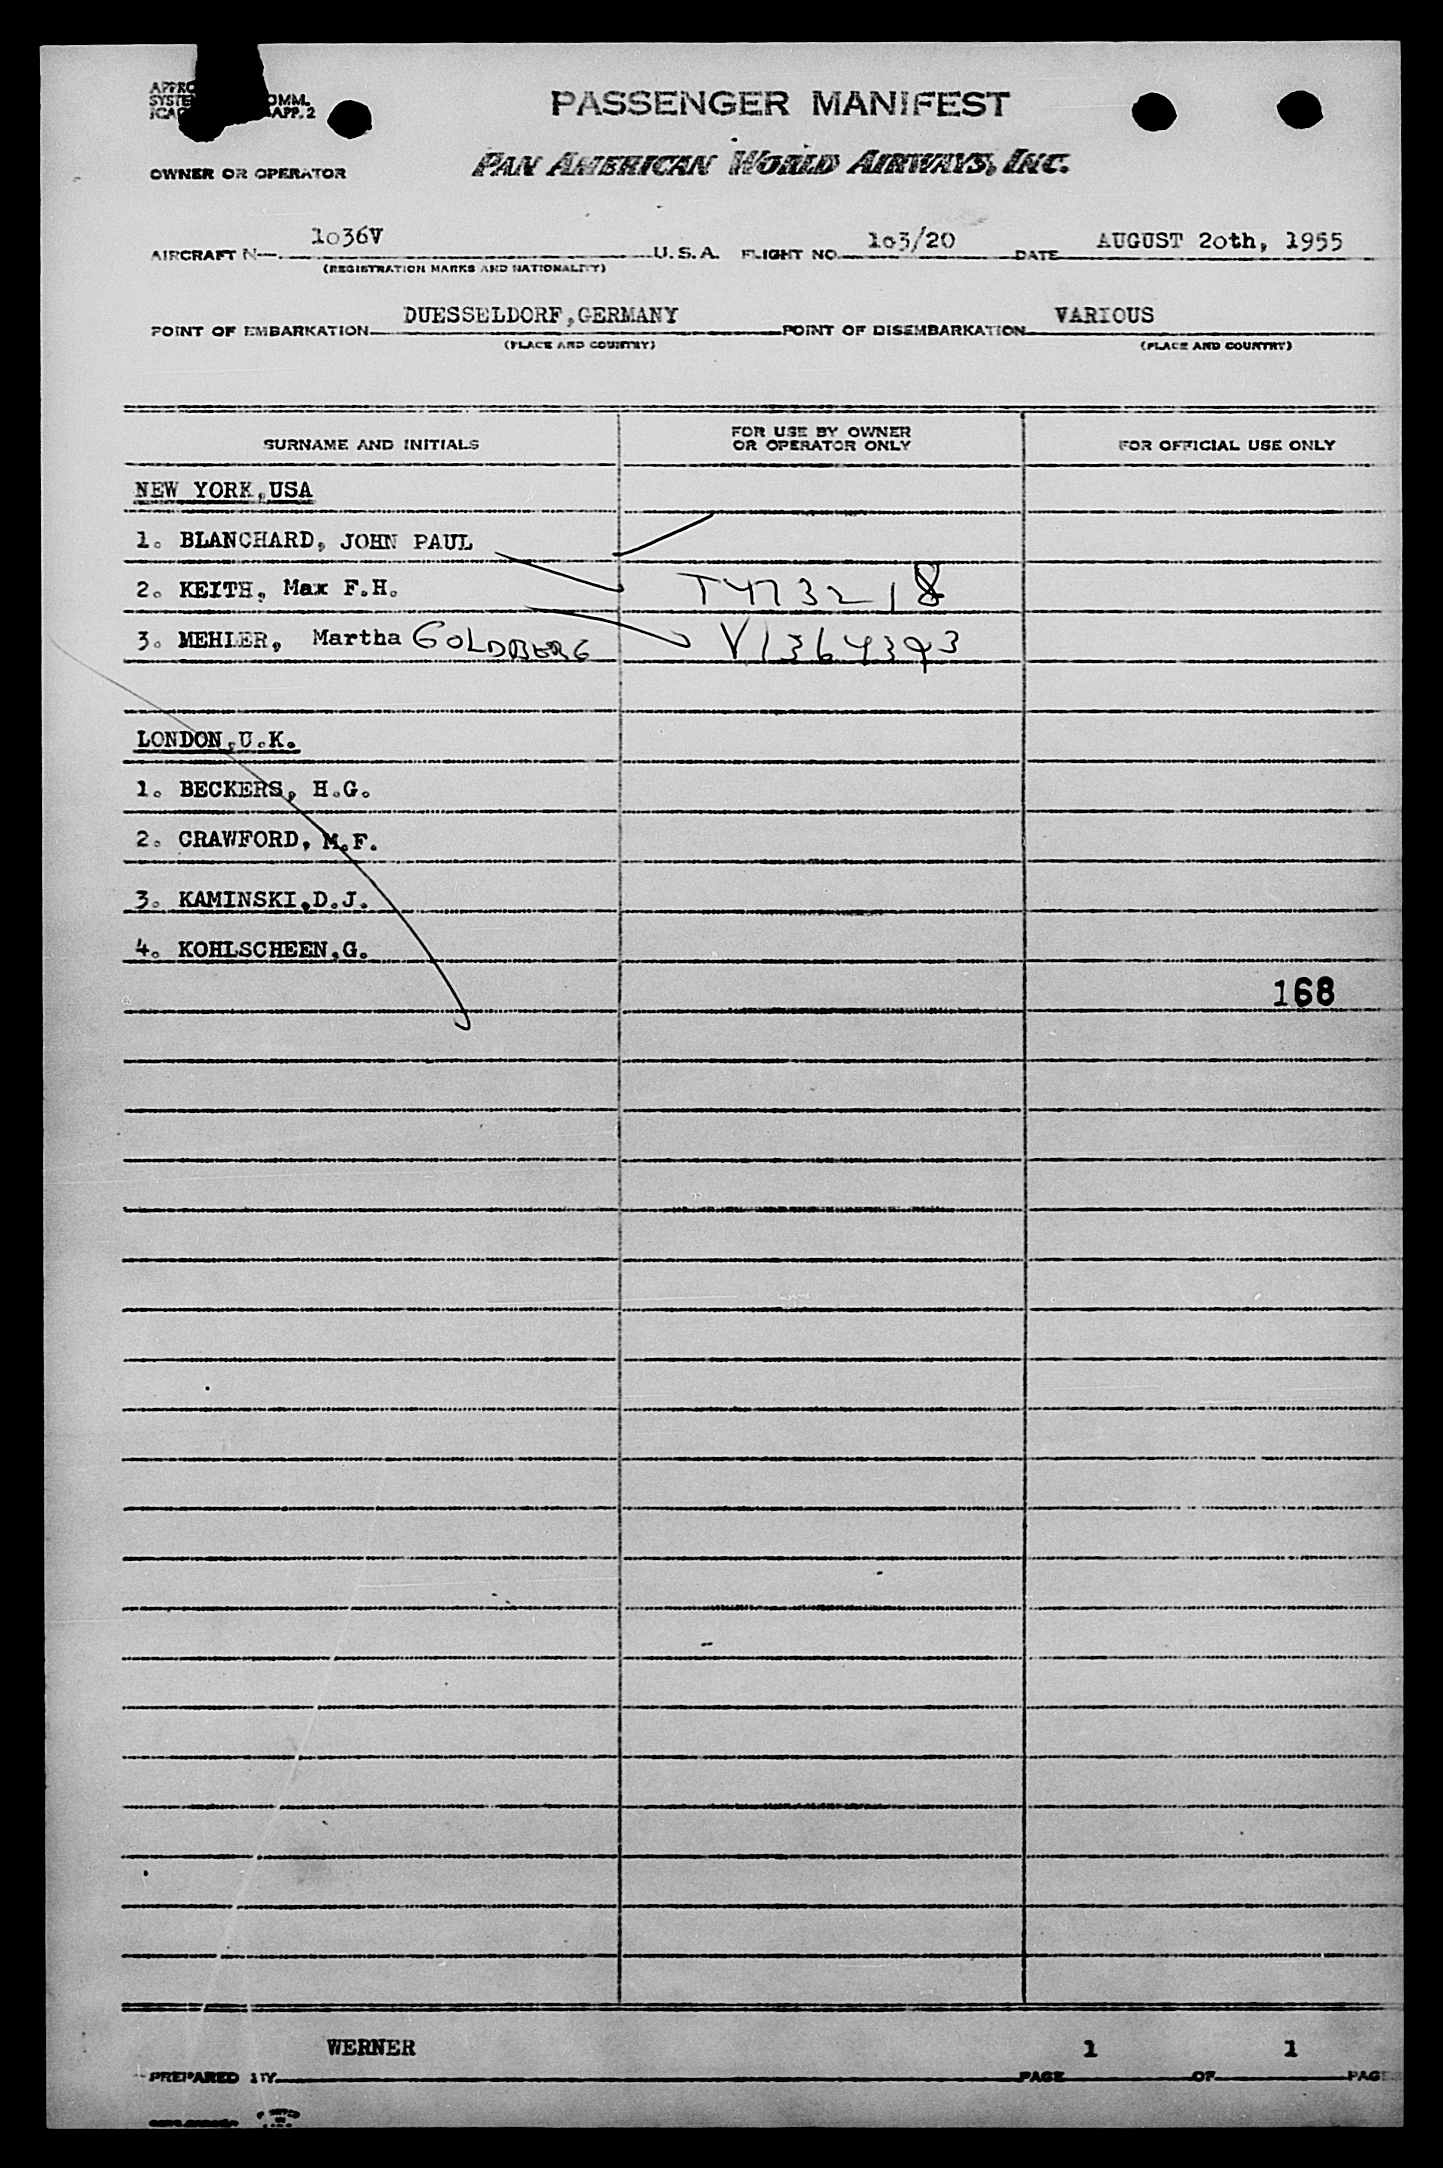 PASSENGER MANIFEST
OMM.
APP. 2
OWNER OR OPERATOR
PAN AMERICAN WORLD AIRWAYS, INC.
AIRCRAFT N—. 1o36V U.S.A. FLIGHT NO. 1o3/20 DATE AUGUST 2oth, 1955
(REGISTRATION MARKS AND NATIONALITY)
POINT OF EMBARKATION DUESSELDORF,GERMANY POINT OF DISEMBARKATION VARIOUS
(PLACE AND COUNTRY) (PLACE AND COUNTRY)
SURNAME AND INITIALS FOR USE BY OWNER OR OPERATOR ONLY FOR OFFICIAL USE ONLY
NEW YORK,USA
1. BLANCHARD, JOHN PAUL
2. KEITH, Max F.H. T473218
3. MEHLER, Martha GOLDBERG V1364393
LONDON,U.K.
1. BECKERS, H.G.
2. CRAWFORD, M.F.
3. KAMINSKI,D.J.
4. KOHLSCHEEN,G.
168
WERNER 1 1
PREPARED BY PAGE OF PAGES